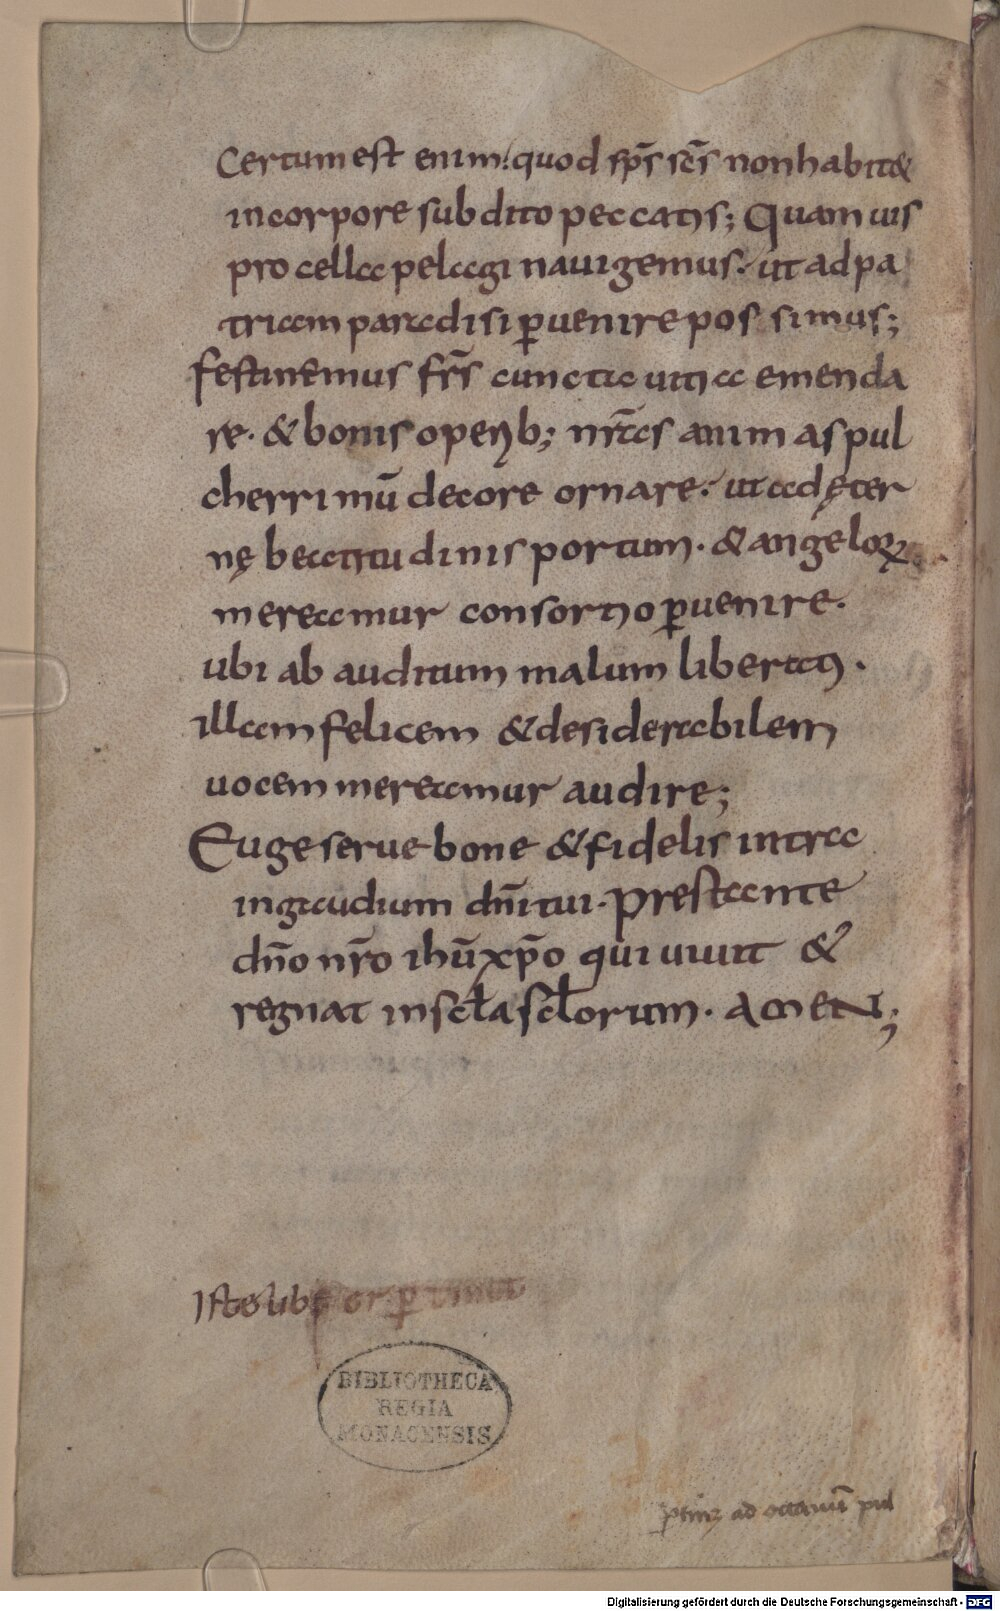 Certum est enim quod sp̄s sc̄s non habit&
in corpore subdito peccatis; Quam uis
procella pelagi nauigemus. ut ad pa
triam paradisi ꝑuenire possimus;
festinemus fr̄s cuncta uitia emenda
re. & bonis operib; nr̄as animas pul
cherrimū decore ornare. ut ad ęter
nę beatitudinis portum. & angeloꝝ
mereamur consortio ꝑuenire.
ubi ab auditum malum liberati.
illam felicem & desiderabilem
uocem mereamur audire;
Euge serue bone & fidelis intra
in gaudium dn̄i tui. prestante
dn̄o nr̄o ihū xp̄o qui uiuit &
regnat in scl̄a scl̄orum. AMEN;
Iste lib
BIBLIOTHECA
REGIA
MONACENSIS
ad
Digitalisierung gefördert durch die Deutsche Forschungsgemeinschaft - DFG